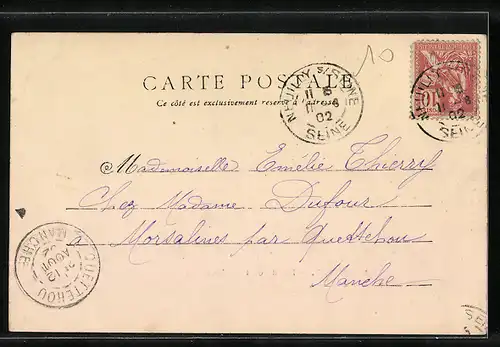 10
CARTE POSTALE
Ce côté est exclusivement réservé à l'adresse
NEUILLY S/SEINE
02
SEINE
10
02
Mademoiselle Emélie Thierry
Chez Madame Dufour
à Morsalines par Quettehou
Manche
QUETTEHOU
MANCHE
12
AOUT